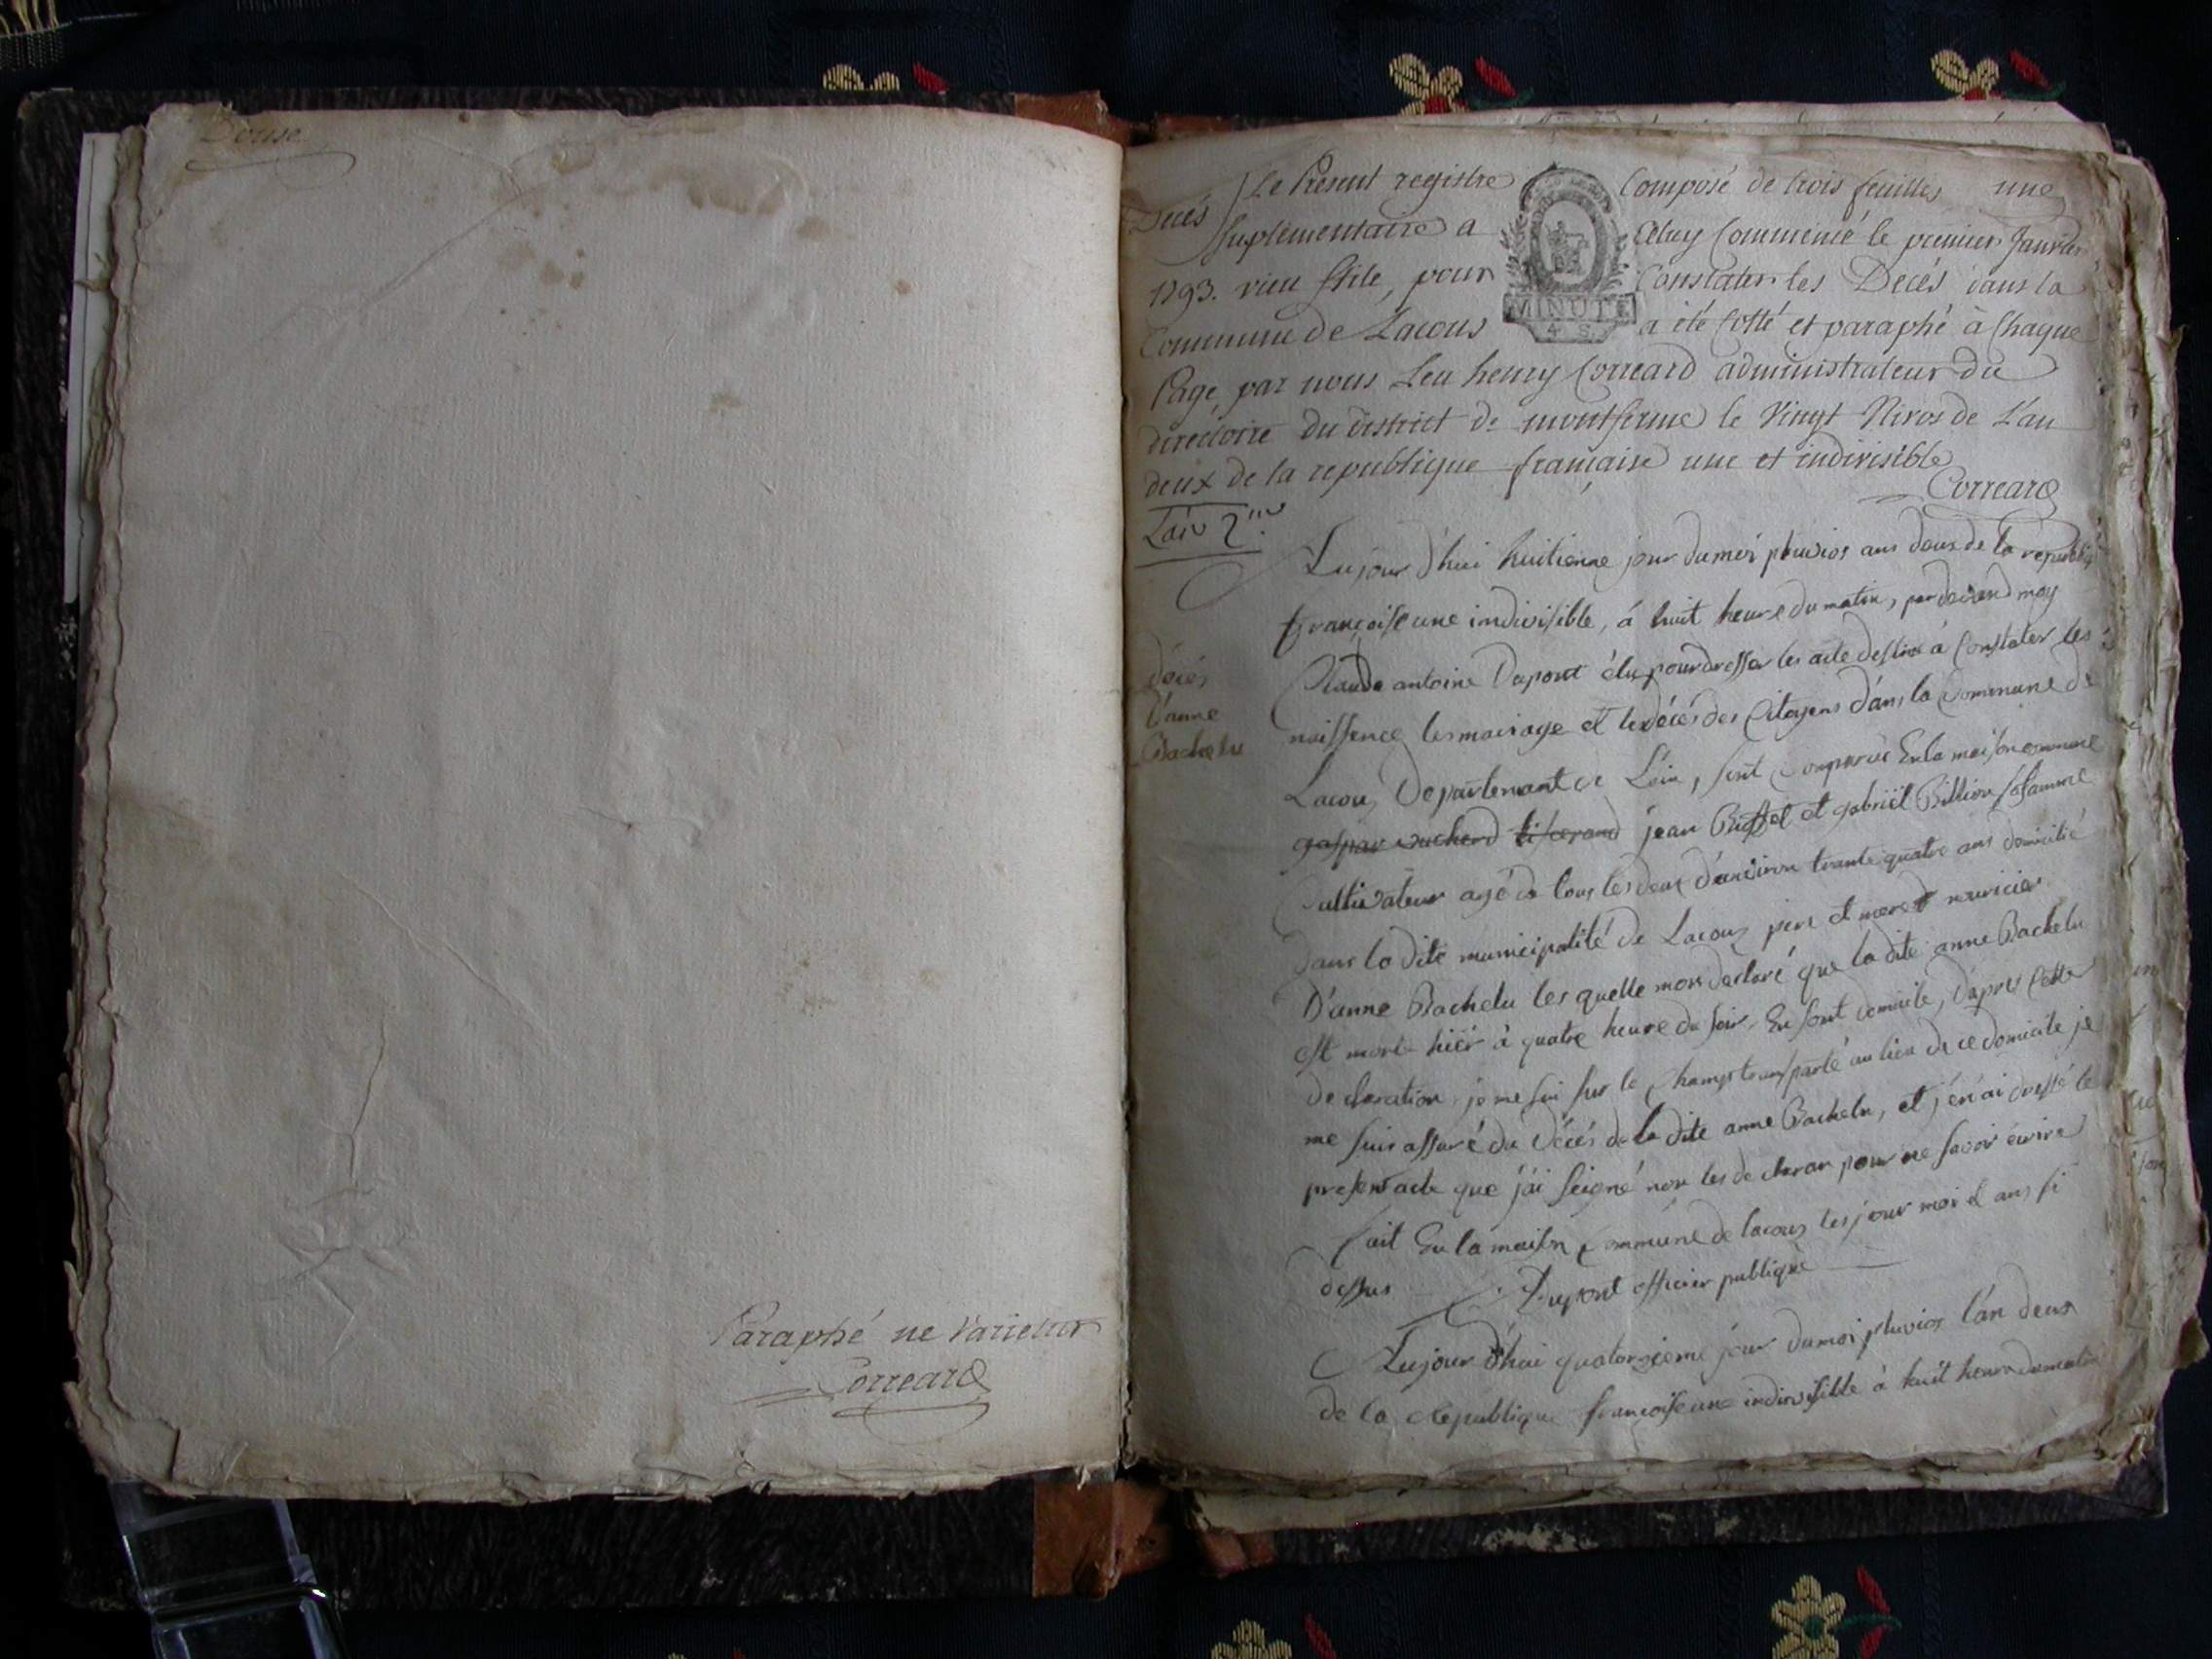 Douse
Paraphé ne Varietur
Correard
Decés
Le Present registre Composé de trois feuilles une
suplementaire a Celuy Commencé le premier Janvier
1793. vieu stile, pour Constater les Decés dans la
Commune de Lacous a été Cotté et paraphé à Chaque
MINUTE
4 S.
Page, par nous Leu henry Correard administrateur du
directoire du district de montferme le Vingt Nivos de L'an
deux de la republique française une et indivisible
Correard
L'an 2me
Aujour d'hui huitieme jour du moi pluvios ans deux de la republiq
françoise une indivisible, á huit heure du matin, par devend moy
décés
D'anne
Bachelu
Claude antoine Dupont élu pour dresser les acte destiné á Constater les
naissence les mariage et les décés des Citoyens dans la Commune de
Lacous Departement de L'ain, sont comparue En la maison commune
gaspar vucherd tiserand jean Buffet et gabriel Billion sa famme
Cultivateur agé de tous les deux d'anviron trante quatre ans domicilié
dans la dite municipalité de Lacous pere et mere nouricier
D'anne Bachelu les quelle mon declaré que la dite anne Bachelu
est morte hiér à quatre heure du soir, En sont domicile, d'apres cette
declaration je me sui sur le Champs transparté au lieu de ce domicile je
me suis assuré du Décés de la dite anne Bachelu, et j'en ai dressé le
present acte que j'ai seigné non les declaran pour ne savoir écrire
fait En la maison Commune de lacous les jour moi et ans si
dessus Dupont officier publique
Aujour d'hui quatorzieme jour du moi pluvios l'an deux
de la republique françoise une indivisible à huit heure du matin